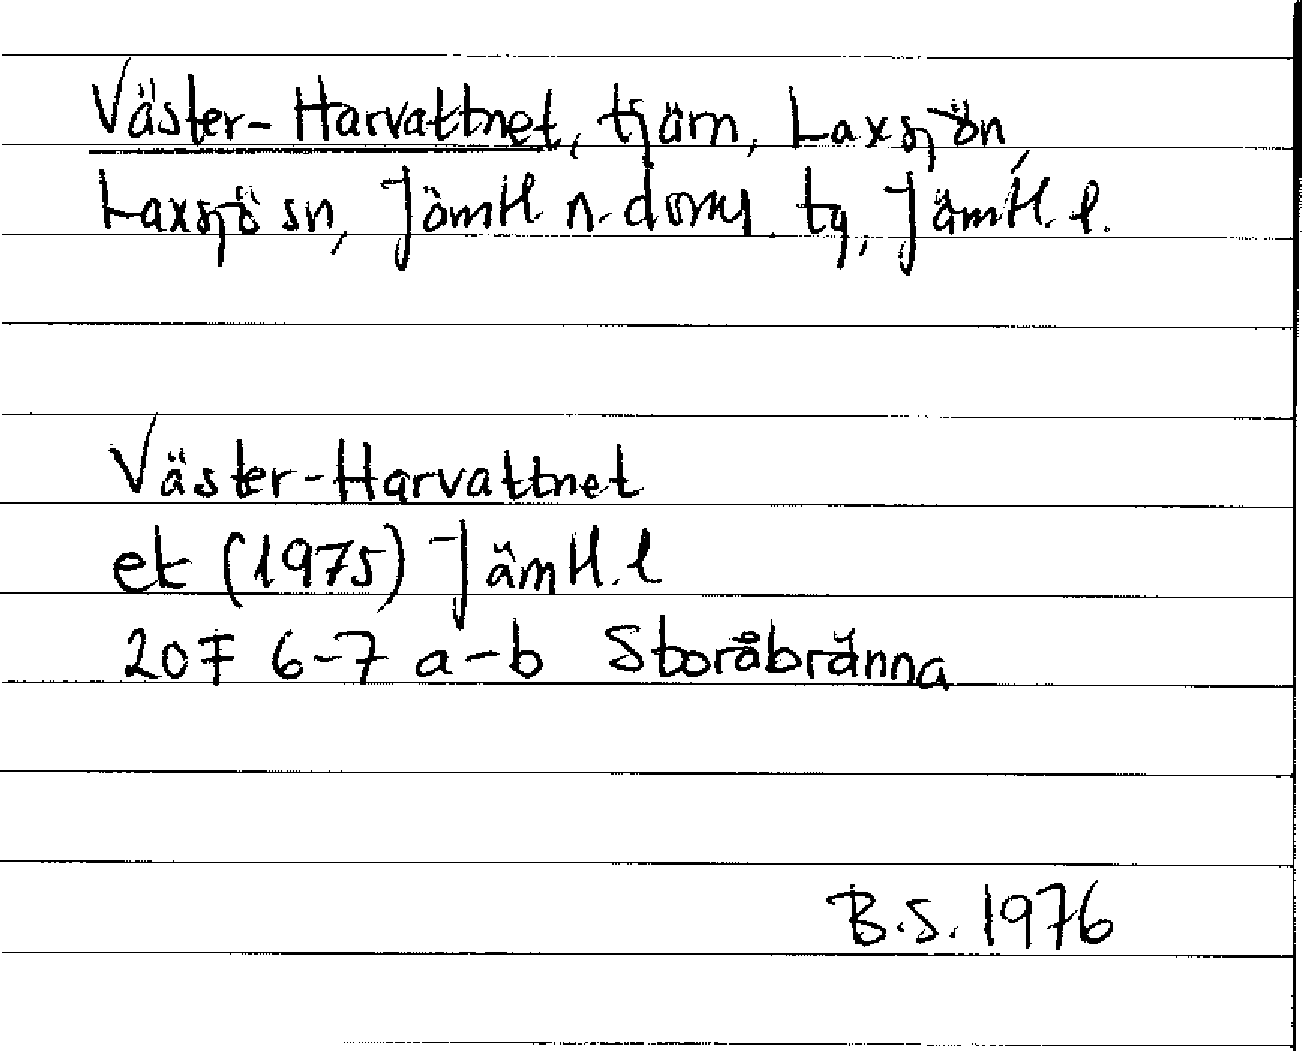 Väster-Harvattnet, tjärn, Laxsjön,
Laxsjö sn, Jämtl. n. doms. tg, Jämtl. l.
Väster-Harvattnet
ek (1975) Jämtl. l
20F 6-7 a-b Storåbränna
B.S. 1976